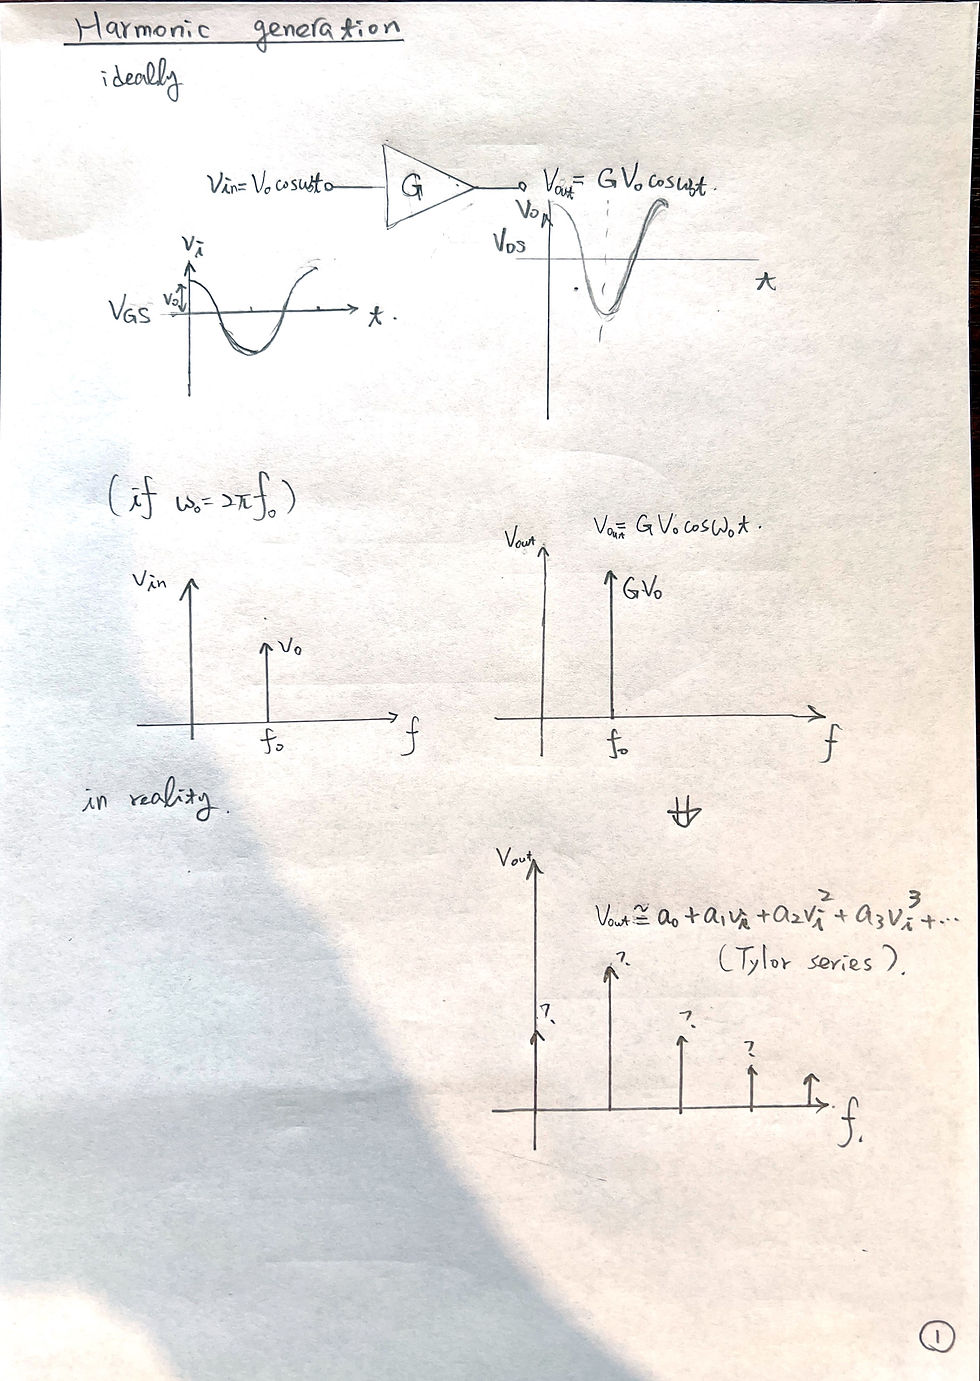 Harmonic generation
ideally
Vin = V₀ cosω₀t
G
Vout = GV₀ cosω₀t.
Vi
V₀
VGS
t.
V₀
VDS
t
(if ω₀ = 2πf₀)
Vin
V₀
f₀
f
Vout
Vout = GV₀ cosω₀t.
GV₀
f₀
f
in reality.
Vout
Vout ≅ a₀ + a₁vᵢ + a₂vᵢ² + a₃vᵢ³ + ...
(Tylor series).
?
?
?
?
f.
1